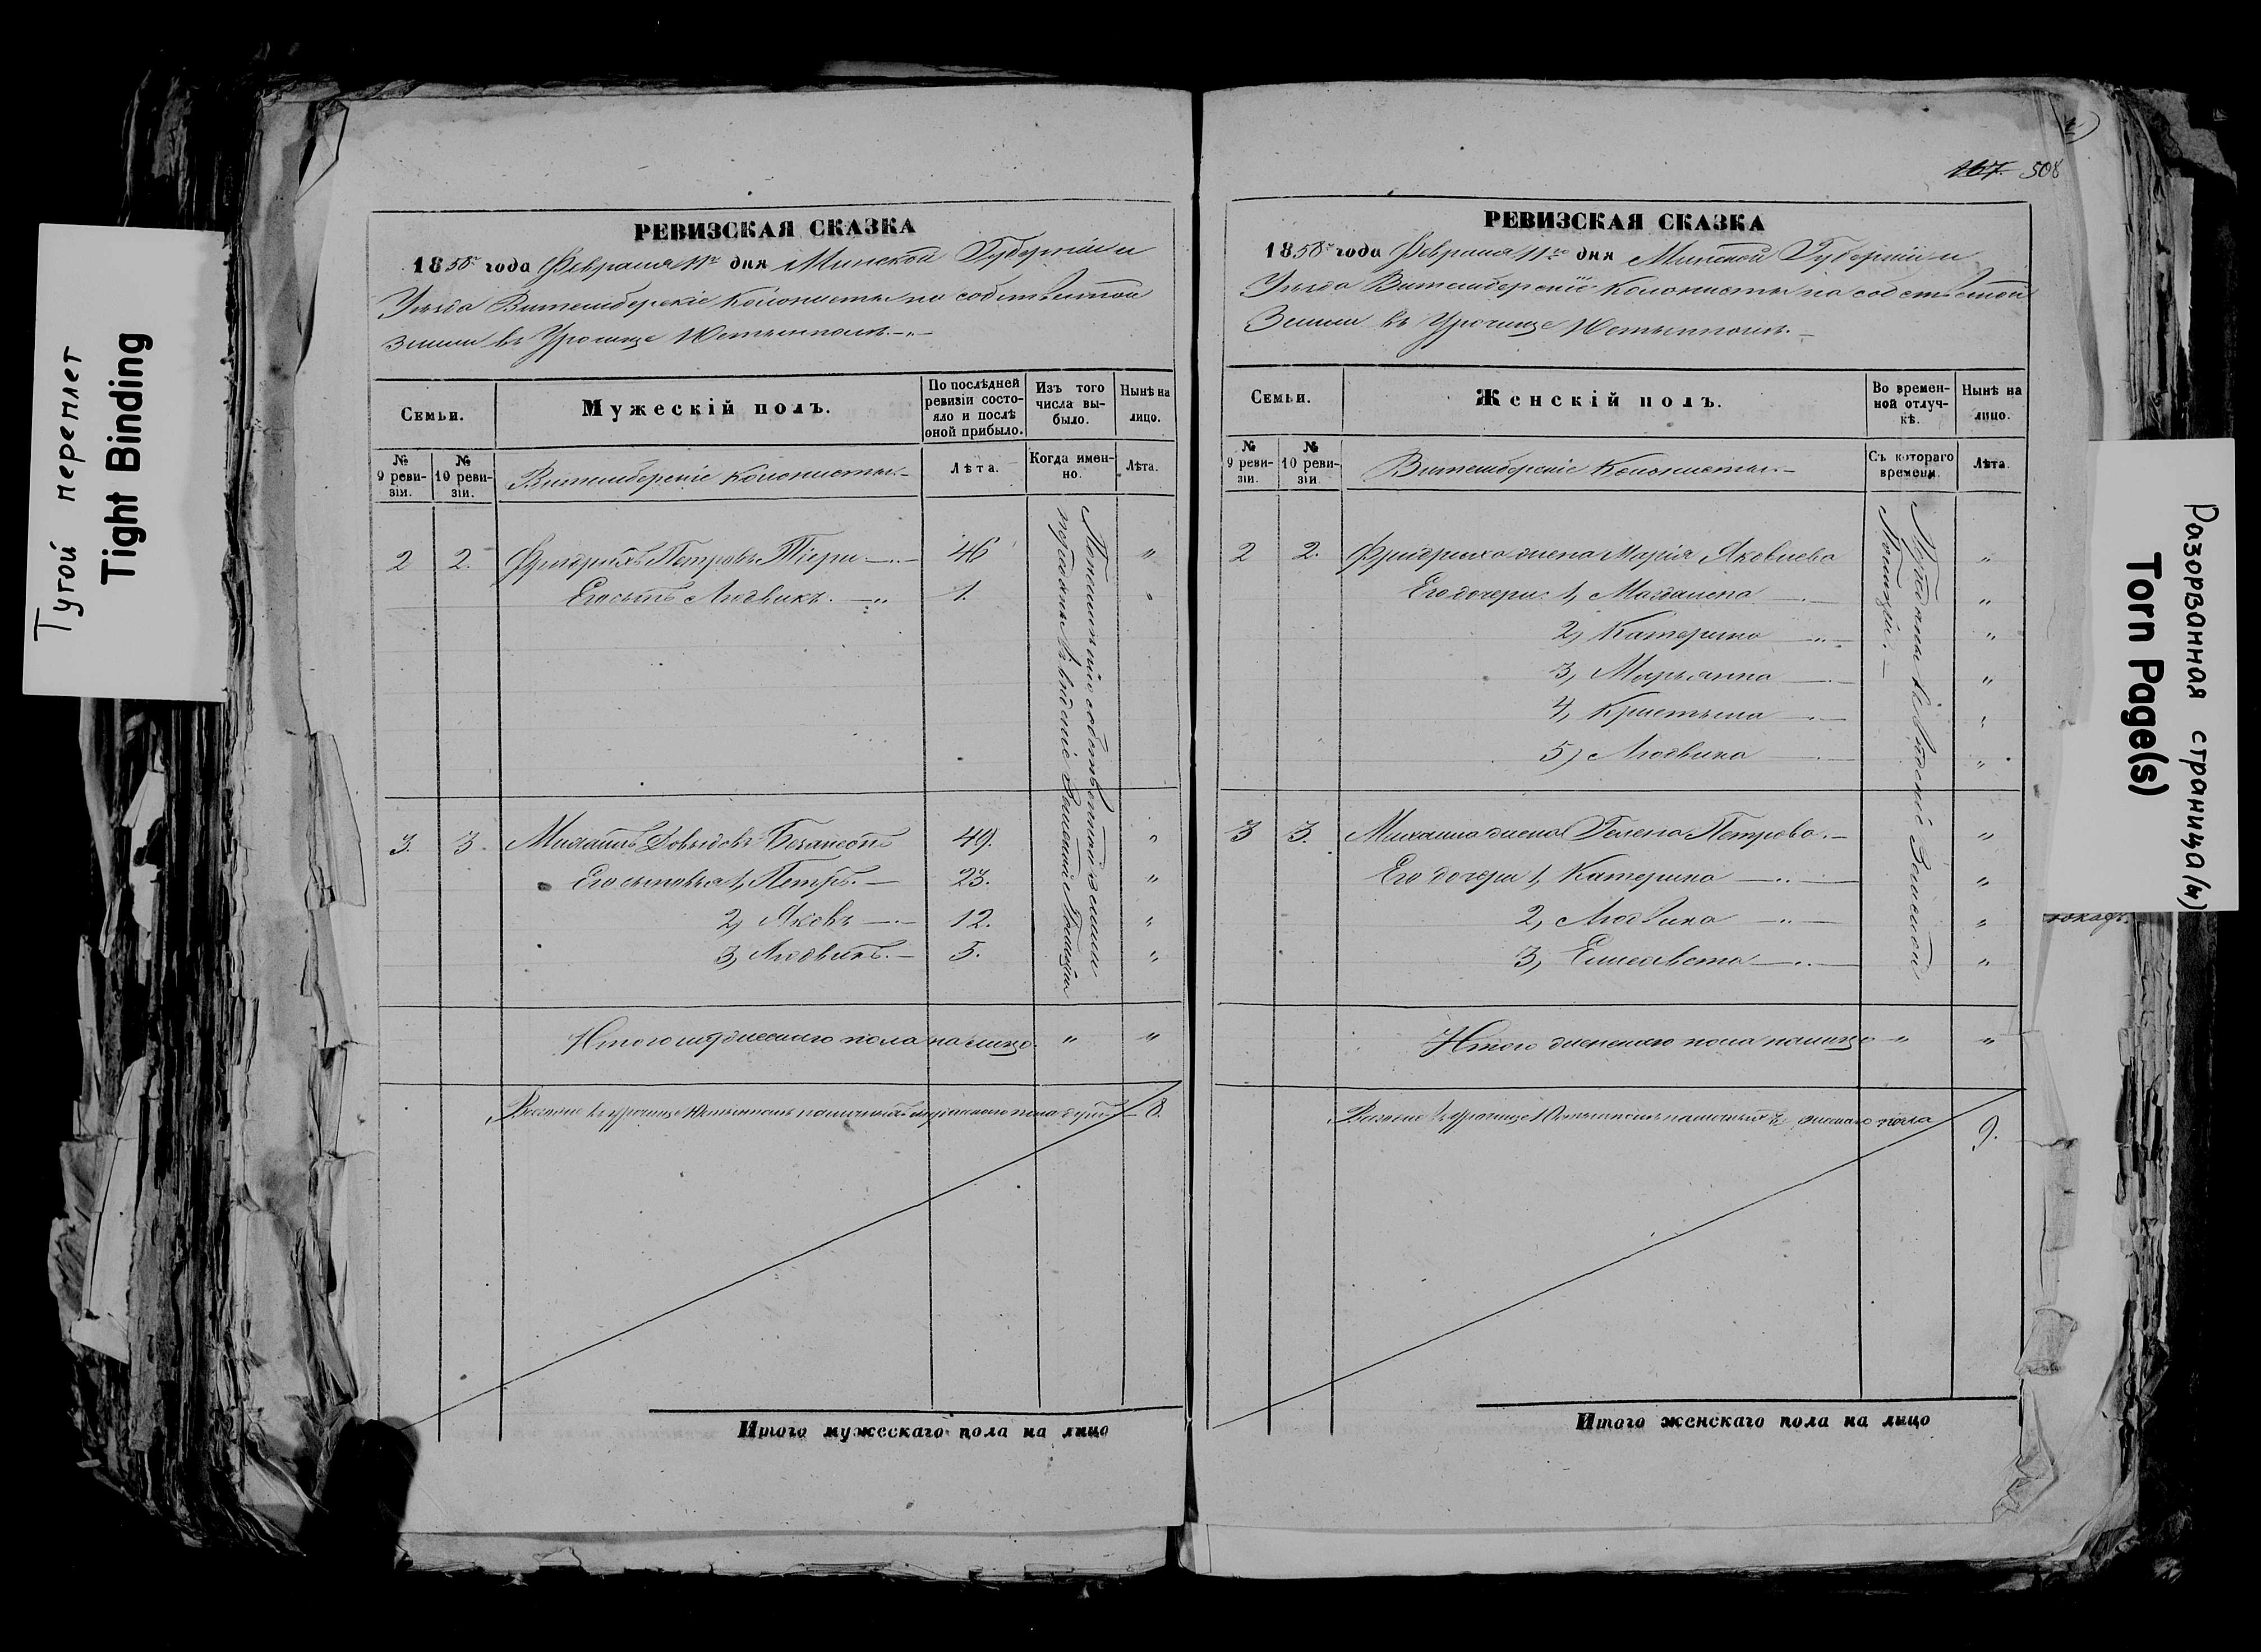 Тугой переплет
Tight Binding
РЕВИЗСКАЯ СКАЗКА
1858 года Февраля 11 дня Минской Губерніи и
Уѣзда Витембергскіе Колонисты на собственной
Земли въ Урочище
Семьи.
Мужескій полъ.
По послѣдней ревизіи состояло и послѣ оной прибыло.
Изъ того числа выбыло.
Нынѣ на лицо.
№ 9 ревизіи.
№ 10 ревизіи.
Витембергскіе Колонисты.
Лѣта.
Когда именно.
Лѣта.
2 2. Фридрихъ Петровъ 46 "
Его сынъ Людвикъ. 1. "
3. 3. Михаилъ Давыдовъ 49. "
Его сыновья 1, Петръ. 23. "
2, Яковъ 12. "
3, Людвикъ. 5. "
По
собственной земли
переданы въ вѣденіе Земской Полиціи
Итого мужескаго пола на лицо " "
Всего въ урочище наличныхъ мужескаго пола душъ 8.
Итого мужескаго пола на лицо
167. 508
РЕВИЗСКАЯ СКАЗКА
1858 года Февраля 11го дня Минской Губерніи и
Уѣзда Витембергскіе Колонисты на собственной
Земли въ Урочище
Семьи.
Женскій полъ.
Во временной отлучкѣ.
Нынѣ на лицо.
№ 9 ревизіи.
№ 10 ревизіи
Витембергскіе Колонисты.
Съ котораго времени.
Лѣта.
2 2. Фридриха жена Марія Яковлева "
Его дочери: 1, Магдалена "
2, Катерина "
3, Марьянна "
4, Кристына "
5) Людвика "
3 3. Михаила жена Гелена Петрова. "
Его дочери 1, Катерина "
2, Людвика "
3, Елисавета "
Переданы въ вѣденіе Земской
Полиціи.
Итого женскаго пола на лицо " "
Всего въ урочище наличныхъ женскаго пола 9.
Итого женскаго пола на лицо
Разорванная страница(ы)
Torn Page(s)